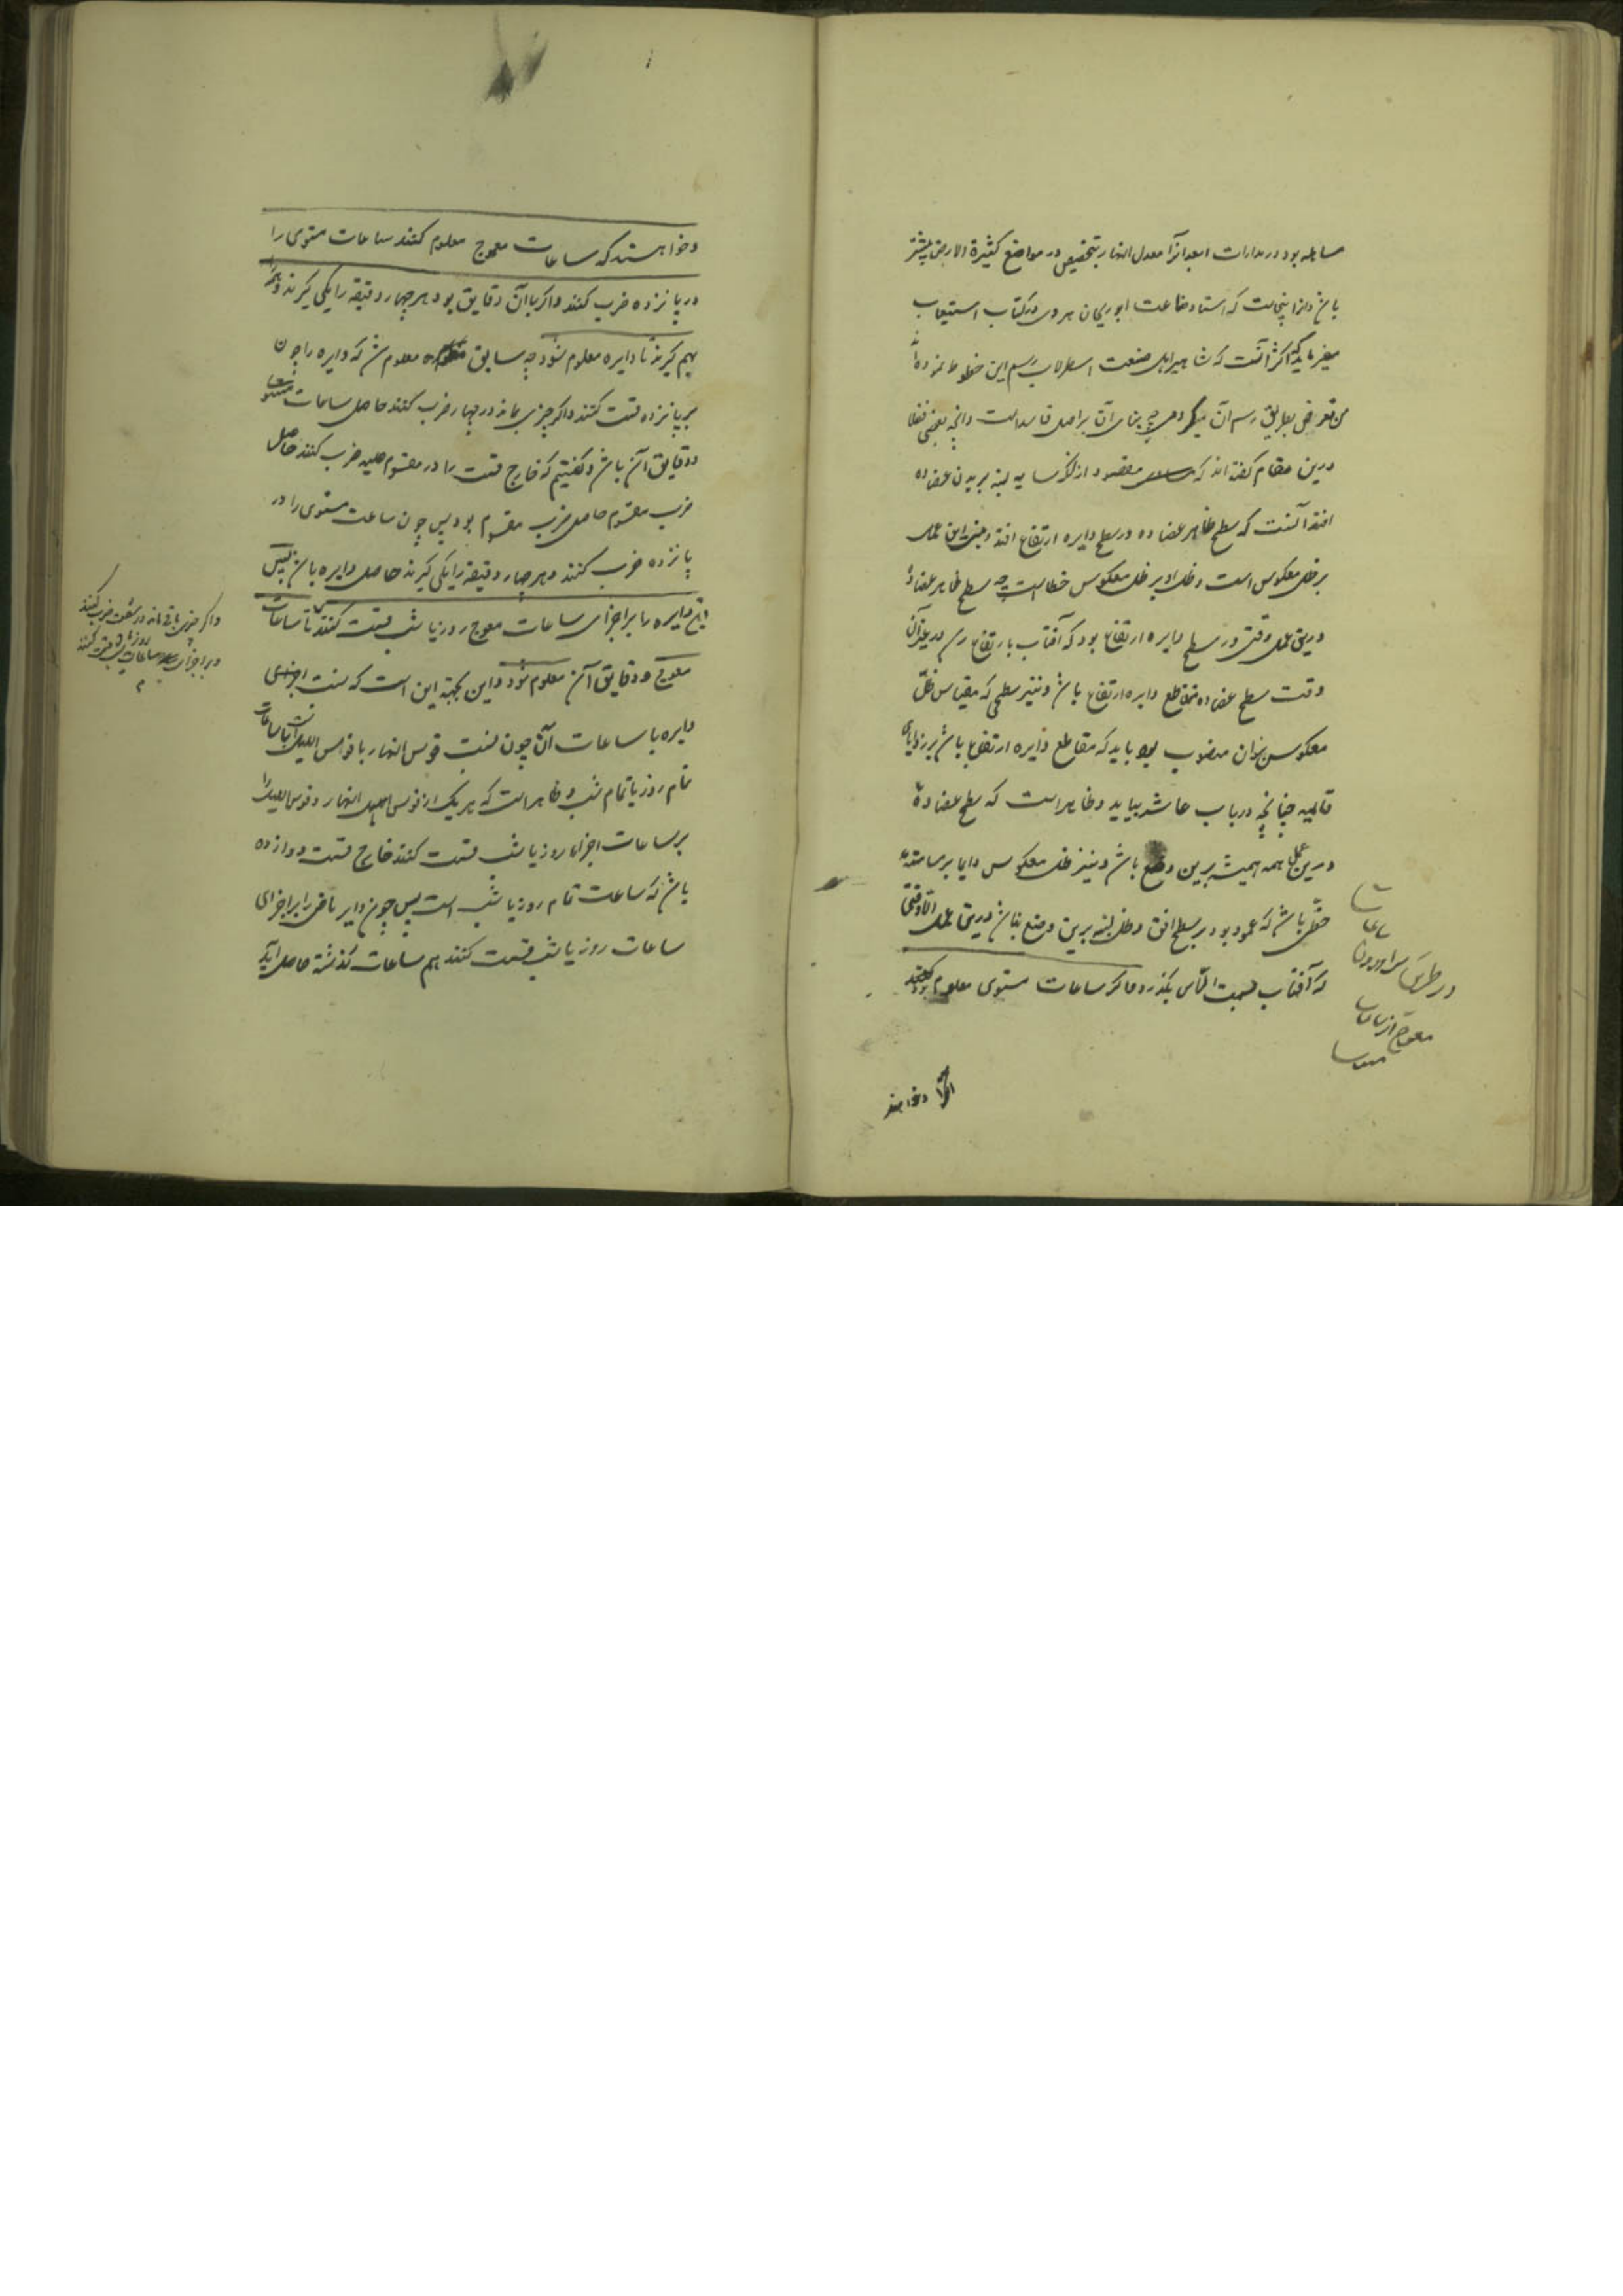 مساهله بود در مدارات ابعد از معدل النهار بتخصیص در مواضع کثیرة الارض بیشتر
باشد و ازاینجاست که استاد صناعت ابو ریحان بیرونی در کتاب استیعاب
میفرماید که اکثر آنست که مشاهیر اهل صنعت اسطرلاب رسم این خطوط نموده اند
من تعرض بطریق رسم آن چه بنای آن بر اصل فاسد است و آنچه بعضی فضلا
درین مقام گفته اند که مقصود از آنکه سایه لبنه بر بدن عضاده
افتد آنست که سطح ظاهر عضاده در سطح دایره ارتفاع افتد و مبنی این عمل
بر ظل معکوس است و ظل او بر ظل معکوس خطاست چه سطح ظاهر عضاده
درین عمل وقتی در سطح دایره ارتفاع بود که آفتاب بارتفاع رسد و در غیر آن
وقت سطح عضاده مقاطع دایره ارتفاع باشد و نیز سطحی که مقیاس ظل
معکوس بران منصوب بود باید که مقاطع دایره ارتفاع باشد بر زوایای
قایمه چنانچه در باب عاشر بیاید و ظاهر است که سطح عضاده
درین عمل همه همیشه برین وضع باشد و نیز ظل معکوس دایما بر مسامته
خطی باشد که عمود بود بر سطح افق و ظل لبنه برین وضع نباشد درین عمل الا وقتی
که آفتاب بسمت الراس بگذرد و اگر ساعات مستوی معلوم کنند
ساعات
معوج از ساعات
وخواهند
وخواهند که ساعات معوج معلوم کنند ساعات مستوی را
در پانزده ضرب کنند و اگر با آن دقایق بود هر چهار دقیقه را یکی گیرند و همه را
بهم گیرند تا دایره معلوم شود چه سابق معلوم شد که دایره را چون
بر پانزده قسمت کنند و اگر چیزی بماند در چهار ضرب کنند حاصل ساعات مستوی
و دقایق آن باشد و گفتیم که خارج قسمت را در مقسوم علیه ضرب کنند حاصل
ضرب مقسوم حاصل ضرب مقسوم بود پس چون ساعت مستوی را در
پانزده ضرب کنند و هر چهار دقیقه را یکی گیرند حاصل دایره باشد پس
این دایره را بر اجزای ساعات معوج روز یا شب قسمت کنند تا ساعات
معوج و دقایق آن معلوم شود و این بجهة این است که نسبت اجزای
دایره با ساعات آن چون نسبت قوس النهار یا قوس اللیل است با ساعات
تمام روز یا تمام شب و ظاهر است که هر یک از قوس النهار و قوس اللیل را
بر ساعات اجزای روز یا شب قسمت کنند خارج قسمت دوازده
باشد که ساعت تمام روز یا شب است پس چون دایر ماضی را بر اجزای
ساعات روز یا شب قسمت کنند هم ساعات گذشته حاصل آید
و اگر چیزی باقی ماند در شصت ضرب کنند
و بر اجزای ساعات روز یا شب قسمت کنند